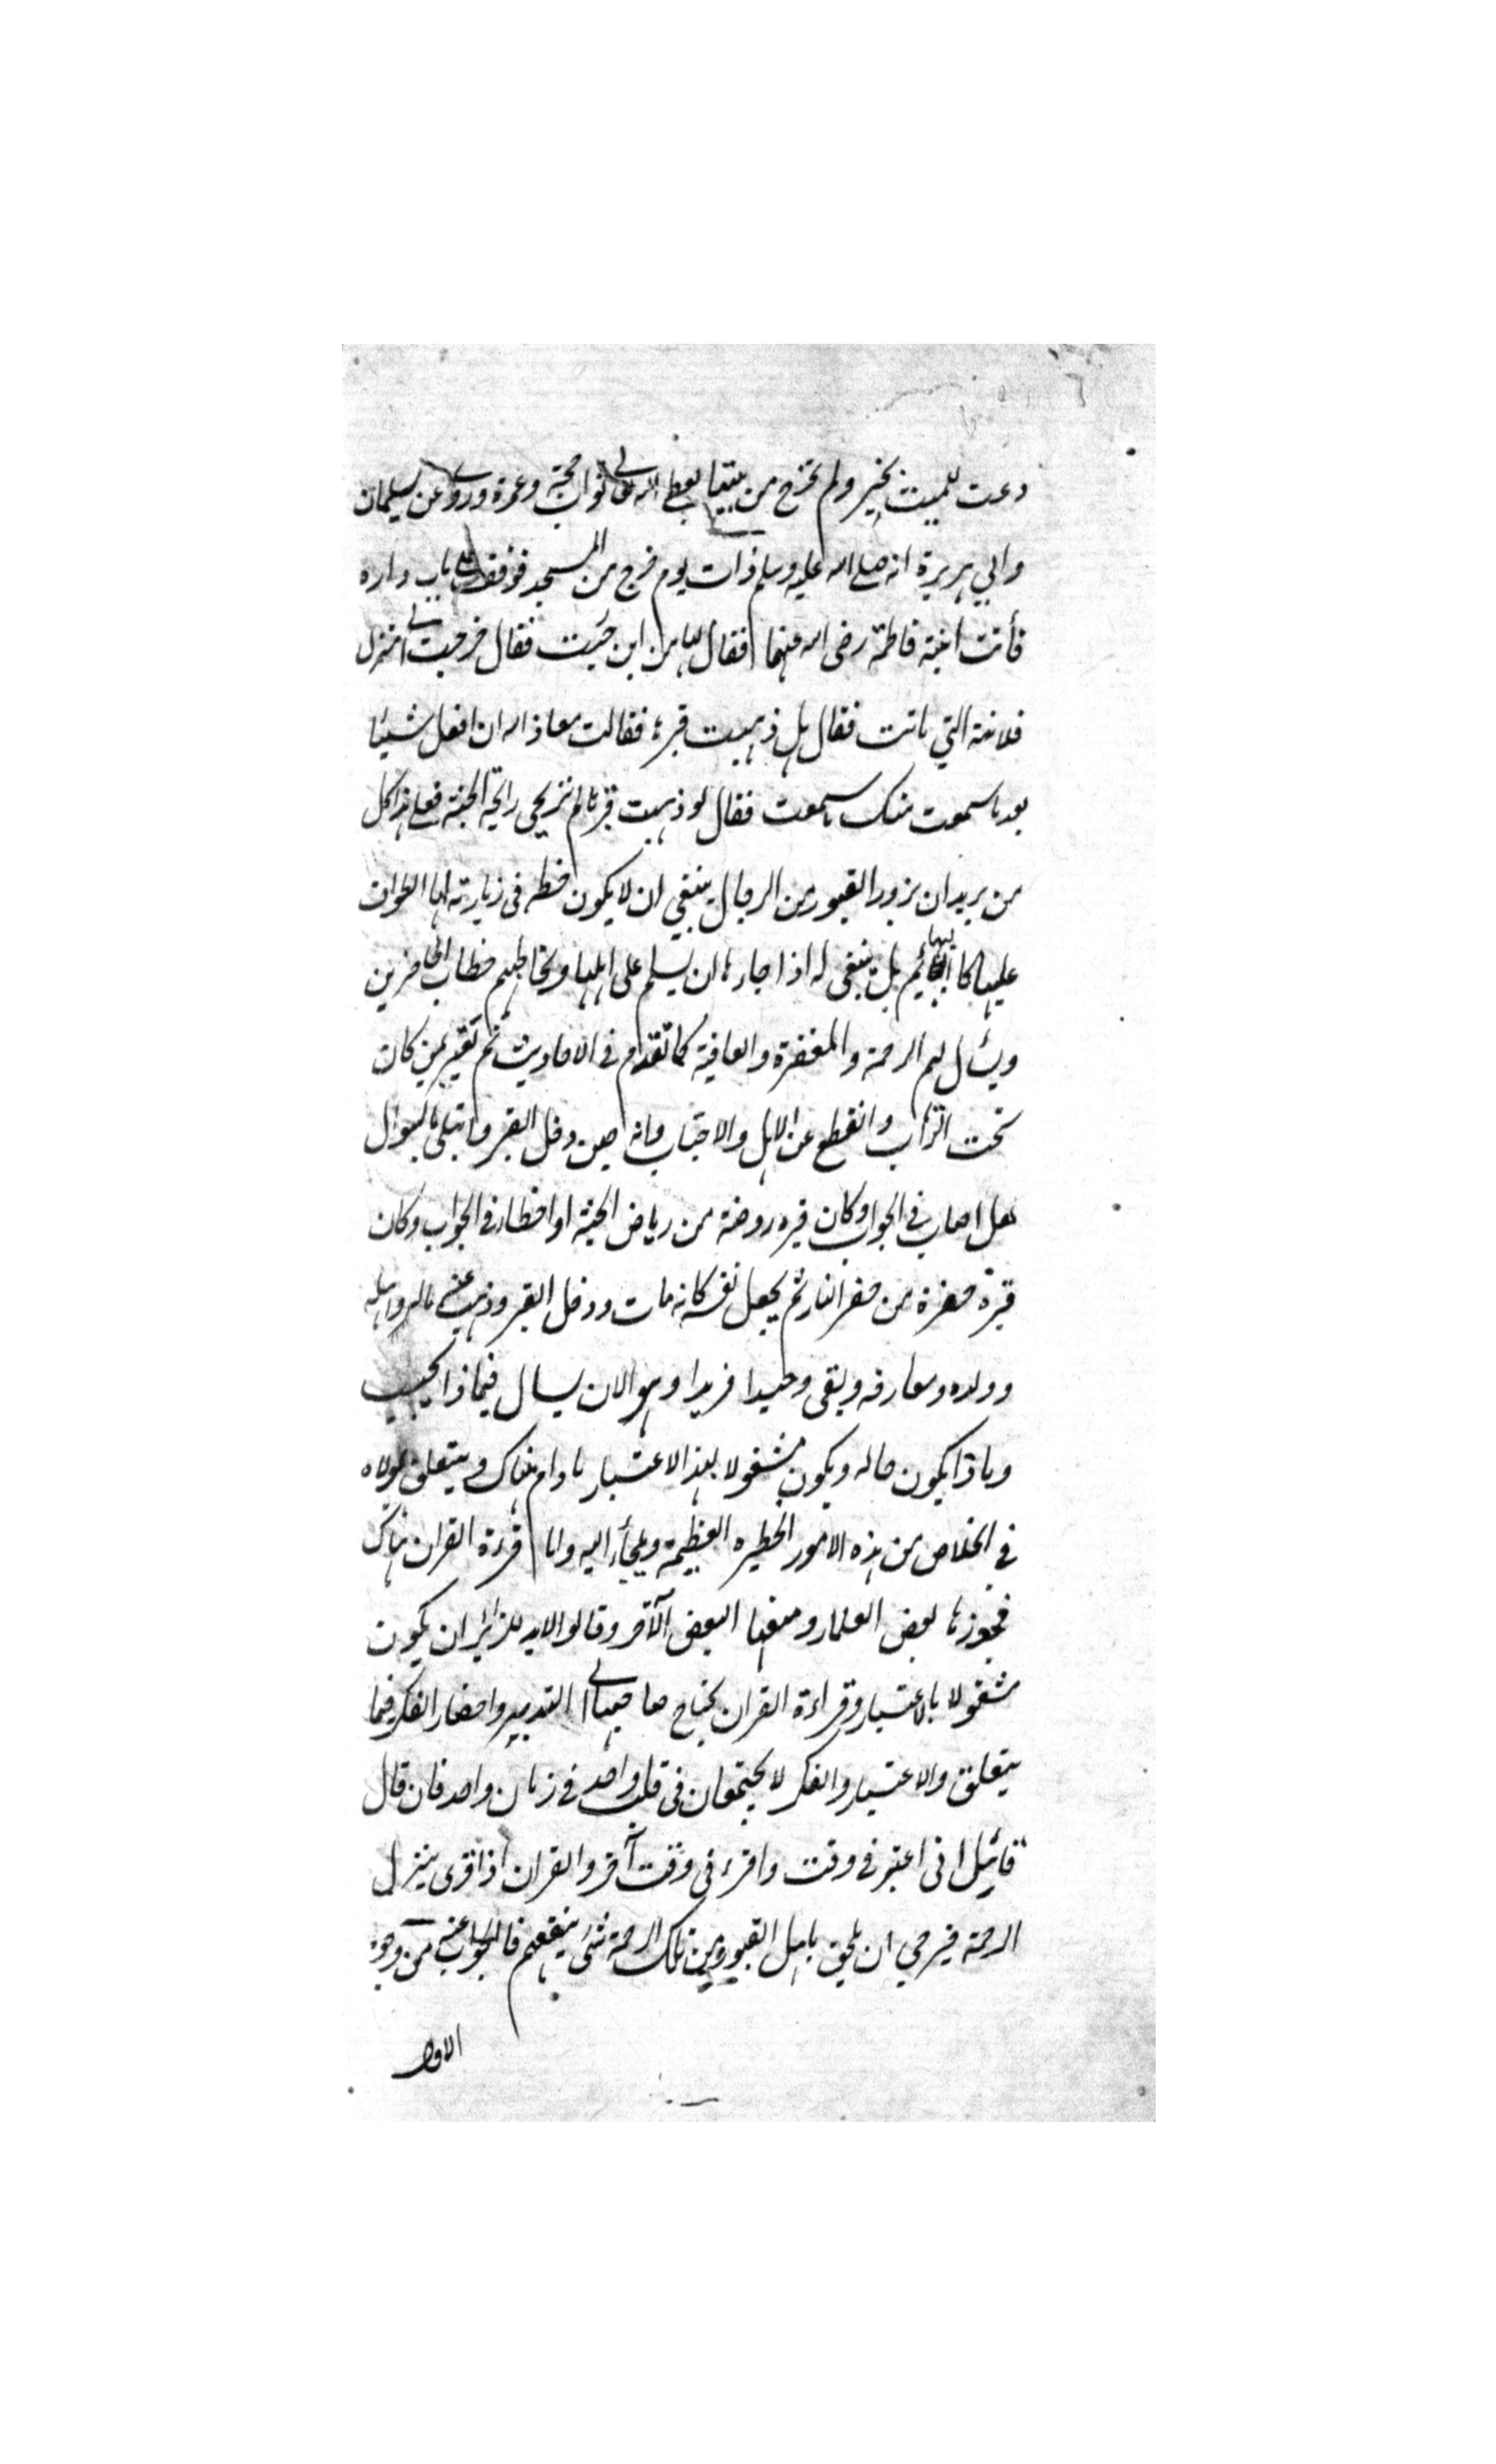 دعت للميت بخير ولم تخرج من بيتها يعطي الله تعالى ثواب حجة وعمرة وروي عن سليمان
وابي هريرة انه صلى الله عليه وسلم ذات يوم خرج من المسجد فوقف على باب داره
فأتت ابنته فاطمة رضى الله عنها فقال لها من اين جئت فقال خرجت الى منزل
فلانة التي ماتت فقال هل ذهبت قبرها فقالت معاذ الله ان افعل شيئا
بعد ما سمعت منك ما سمعت فقال لو ذهبت قبرها لم تريحي رائحة الجنة فعلى هذا كل
من يريد ان يزور القبور من الرجال ينبغي ان لا يكون حظه في زيارته لها الطواف
عليها كالبهائم بل ينبغي له اذا جاءها ان يسلم على اهلها ويخاطبهم خطاب الحاضرين
ويسأل لهم الرحمة والمغفرة والعافية كما تقدم في الاحاديث ثم يعتبر بمن كان
تحت التراب وانقطع عن الاهل والاحباب وانه حين دخل القبر وابتلي بالسؤال
هل اصاب في الجواب وكان قبره روضة من رياض الجنة او اخطاء في الجواب وكان
قبره حفرة من حفر النار ثم يجعل نفسه كانه مات ودخل القبر وذهب عنه ماله واهله
وولده ومعارفه وبقى وحيدا فريدا وهو الان يسال فيماذا يجيب
وماذا يكون حاله ويكون مشغولا بهذا الاعتبار مادام هناك ويتعلق بمولاه
في الخلاص من هذه الامور الخطيره العظيمة ويلجأ اليه واما قرءة القران هناك
فجوزها بعض العلماء ومنعها البعض الآخر وقالوا لابد للزائر ان يكون
مشغولا بالاعتبار وقراءة القران يحتاج صاحبها الى التدبير واحضار الفكر فيما
يتعلق والاعتبار والفكر لا يجتمعان في قلب واحد في زمان واحد فان قال
قائيل انى اعتبر في وقت واقرء في وقت آخر والقران اذا قرى ينزل
الرحمة فيرجى ان يلحق باهل القبور من تلك الرحمة شئ ينفعهم فالجواب عنه من وجوه
الاول